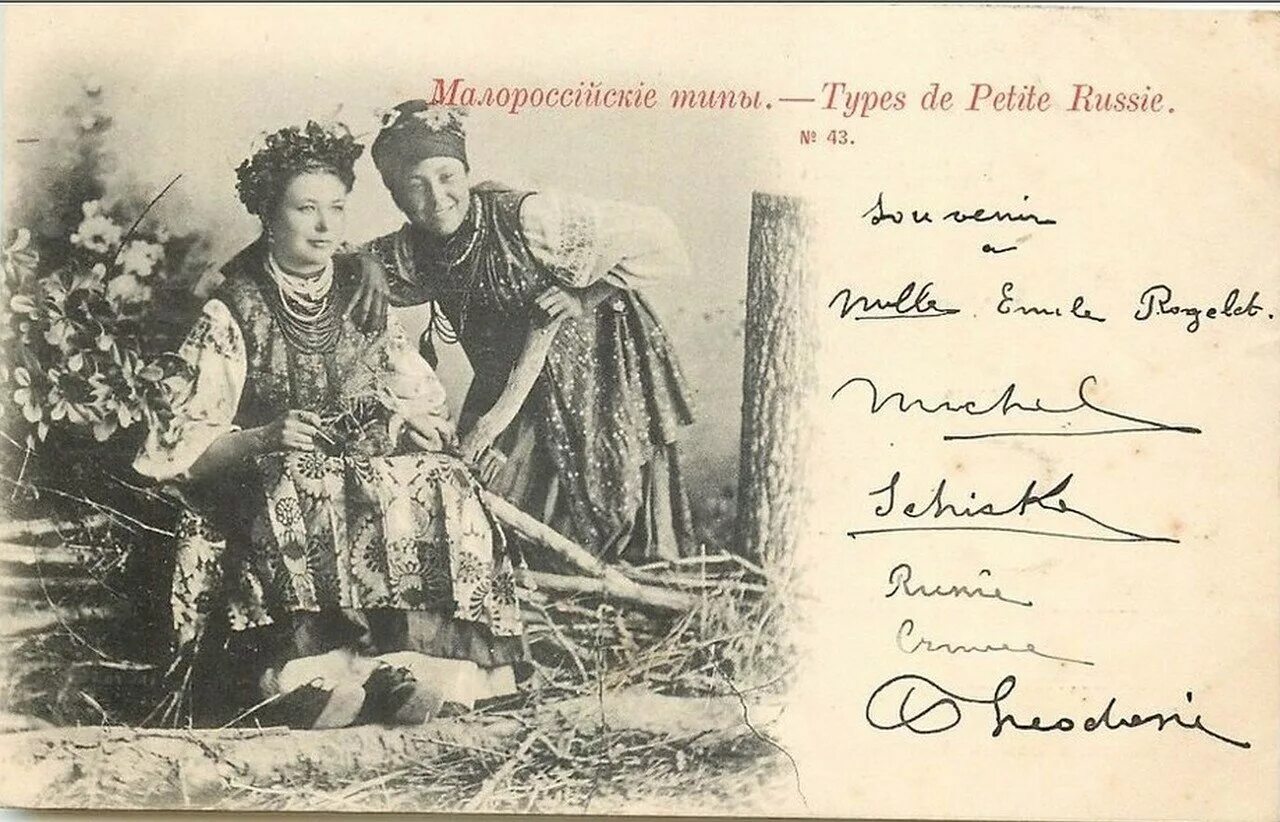 Малороссійскіе типы.—Types de Petite Russie.
№ 43.
Souvenir
a
Mlle Emile Rogelet.
Michel
Schiske
Russie
Crimée
Theodosie